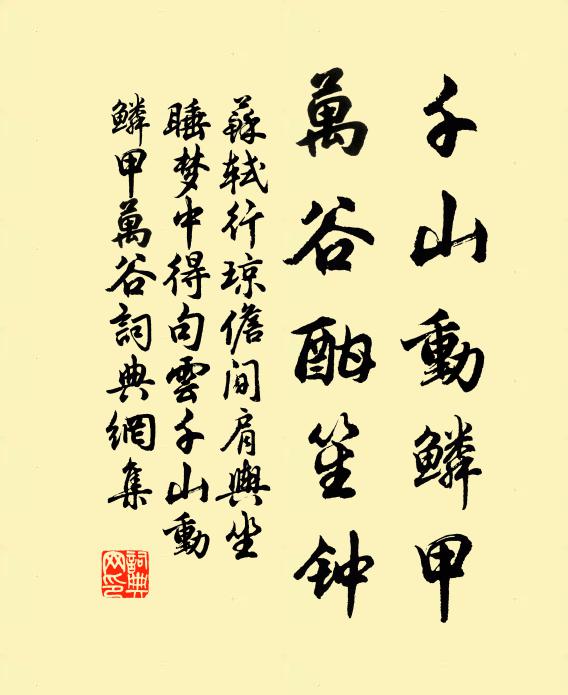 千山動鱗甲
萬谷酣笙钟
蘇軾行琼儋间肩輿坐
睡梦中得句雲千山動
鱗甲萬谷詞典網集
詞典
网印